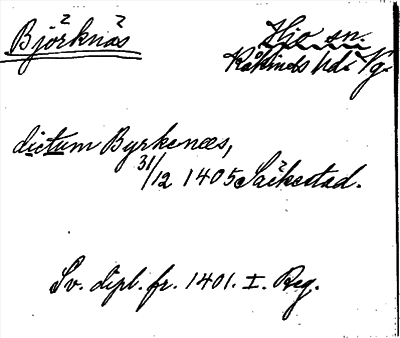 Björknäs
Hjo sn.
Kåkinds hd. Vg.
dictum Byrkenæs,
31/12 1405 Säckestad.
Sv. dipl. fr. 1401. I. Reg.